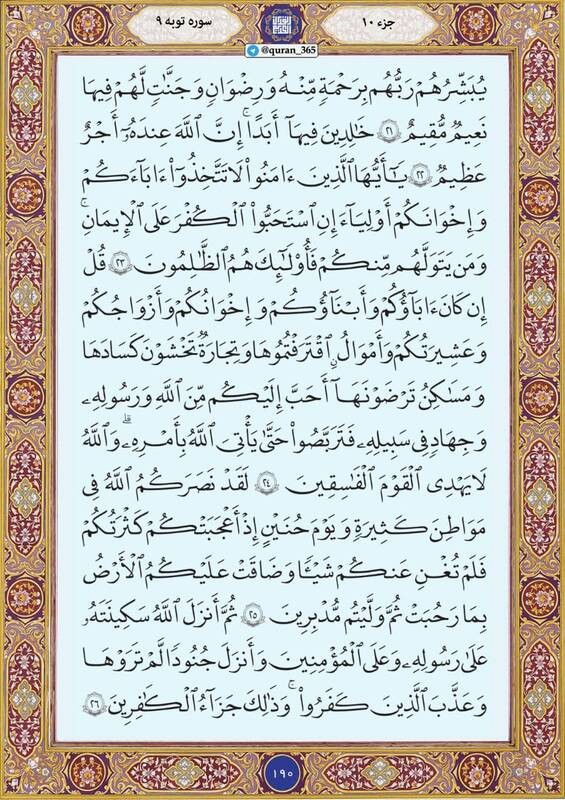 جزء ۱۰
سوره توبه ۹
@quran_365
يُبَشِّرُهُمْ رَبُّهُم بِرَحْمَةٍ مِّنْهُ وَرِضْوَانٍ وَجَنَّاتٍ لَّهُمْ فِيهَا
نَعِيمٌ مُّقِيمٌ ﴿٢١﴾ خَالِدِينَ فِيهَآ أَبَدًا ۚ إِنَّ ٱللَّهَ عِندَهُۥٓ أَجْرٌ
عَظِيمٌ ﴿٢٢﴾ يَٰٓأَيُّهَا ٱلَّذِينَ ءَامَنُوا۟ لَا تَتَّخِذُوٓا۟ ءَابَآءَكُمْ
وَإِخْوَانَكُمْ أَوْلِيَآءَ إِنِ ٱسْتَحَبُّوا۟ ٱلْكُفْرَ عَلَى ٱلْإِيمَانِ ۚ
وَمَن يَتَوَلَّهُم مِّنكُمْ فَأُو۟لَٰٓئِكَ هُمُ ٱلظَّالِمُونَ ﴿٢٣﴾ قُلْ
إِن كَانَ ءَابَآؤُكُمْ وَأَبْنَآؤُكُمْ وَإِخْوَانُكُمْ وَأَزْوَاجُكُمْ
وَعَشِيرَتُكُمْ وَأَمْوَالٌ ٱقْتَرَفْتُمُوهَا وَتِجَارَةٌ تَخْشَوْنَ كَسَادَهَا
وَمَسَاكِنُ تَرْضَوْنَهَآ أَحَبَّ إِلَيْكُم مِّنَ ٱللَّهِ وَرَسُولِهِۦ
وَجِهَادٍ فِى سَبِيلِهِۦ فَتَرَبَّصُوا۟ حَتَّىٰ يَأْتِىَ ٱللَّهُ بِأَمْرِهِۦ ۗ وَٱللَّهُ
لَا يَهْدِى ٱلْقَوْمَ ٱلْفَاسِقِينَ ﴿٢٤﴾ لَقَدْ نَصَرَكُمُ ٱللَّهُ فِى
مَوَاطِنَ كَثِيرَةٍ وَيَوْمَ حُنَيْنٍ إِذْ أَعْجَبَتْكُمْ كَثْرَتُكُمْ
فَلَمْ تُغْنِ عَنكُمْ شَيْـًٔا وَضَاقَتْ عَلَيْكُمُ ٱلْأَرْضُ
بِمَا رَحُبَتْ ثُمَّ وَلَّيْتُم مُّدْبِرِينَ ﴿٢٥﴾ ثُمَّ أَنزَلَ ٱللَّهُ سَكِينَتَهُۥ
عَلَىٰ رَسُولِهِۦ وَعَلَى ٱلْمُؤْمِنِينَ وَأَنزَلَ جُنُودًا لَّمْ تَرَوْهَا
وَعَذَّبَ ٱلَّذِينَ كَفَرُوا۟ ۚ وَذَٰلِكَ جَزَآءُ ٱلْكَافِرِينَ ﴿٢٦﴾
۱۹۰